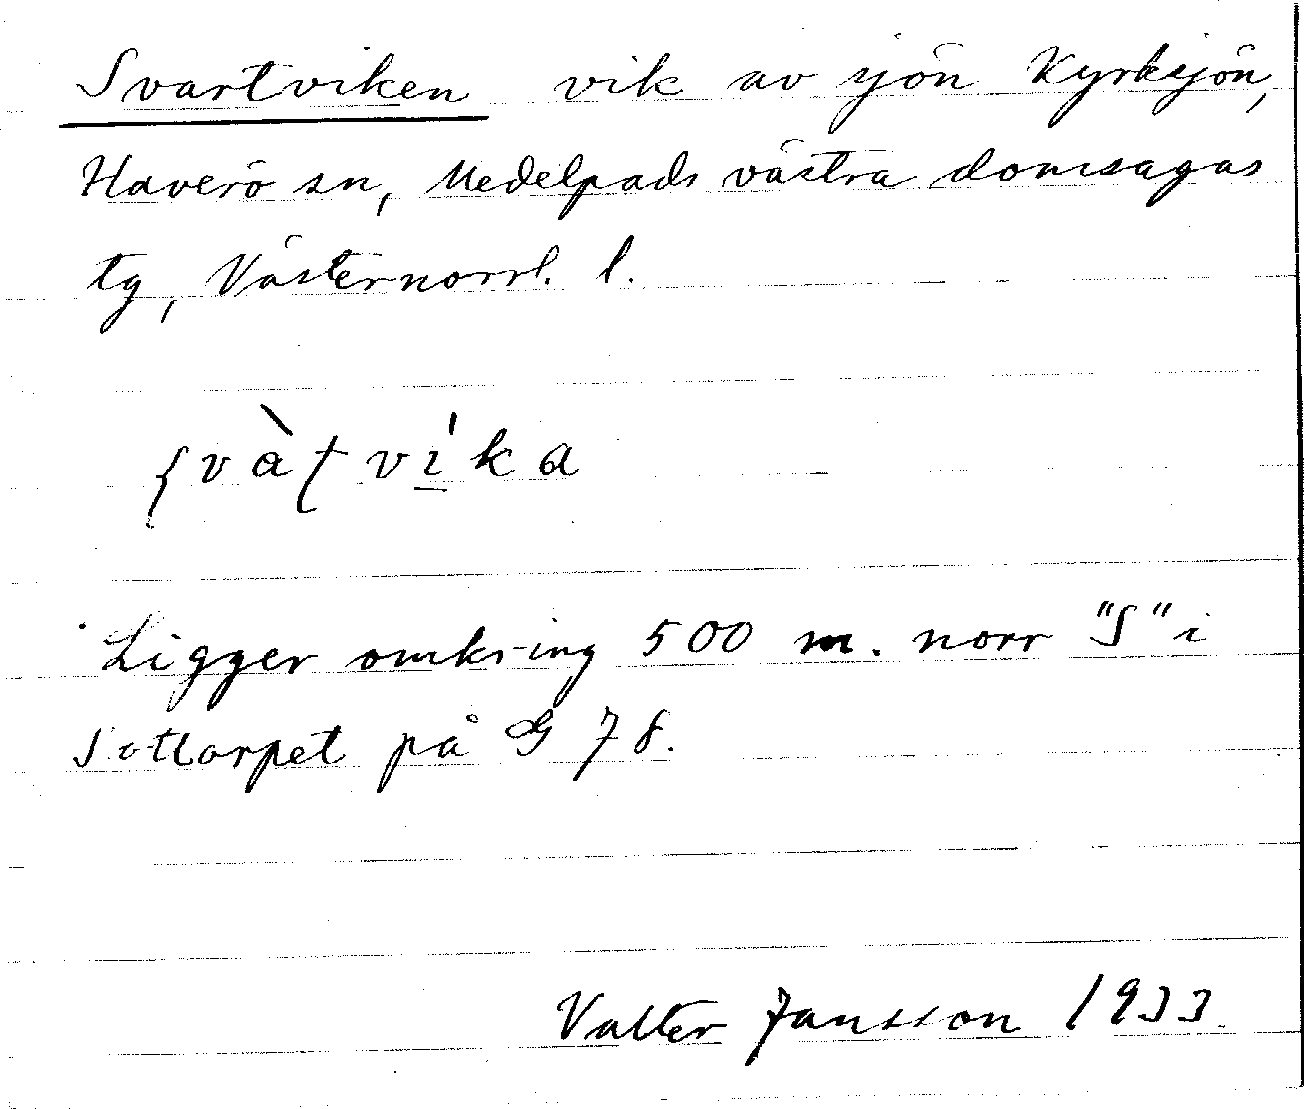 Svartviken vik av sjön Kyrksjön,
Haverö sn, Medelpads västra domsagas
tg, Västernorrl. l.
ʂvàʈvi̲ka
Ligger omkring 500 m. norr "S" i
Sottorpet på G 78.
Valter Jansson 1933